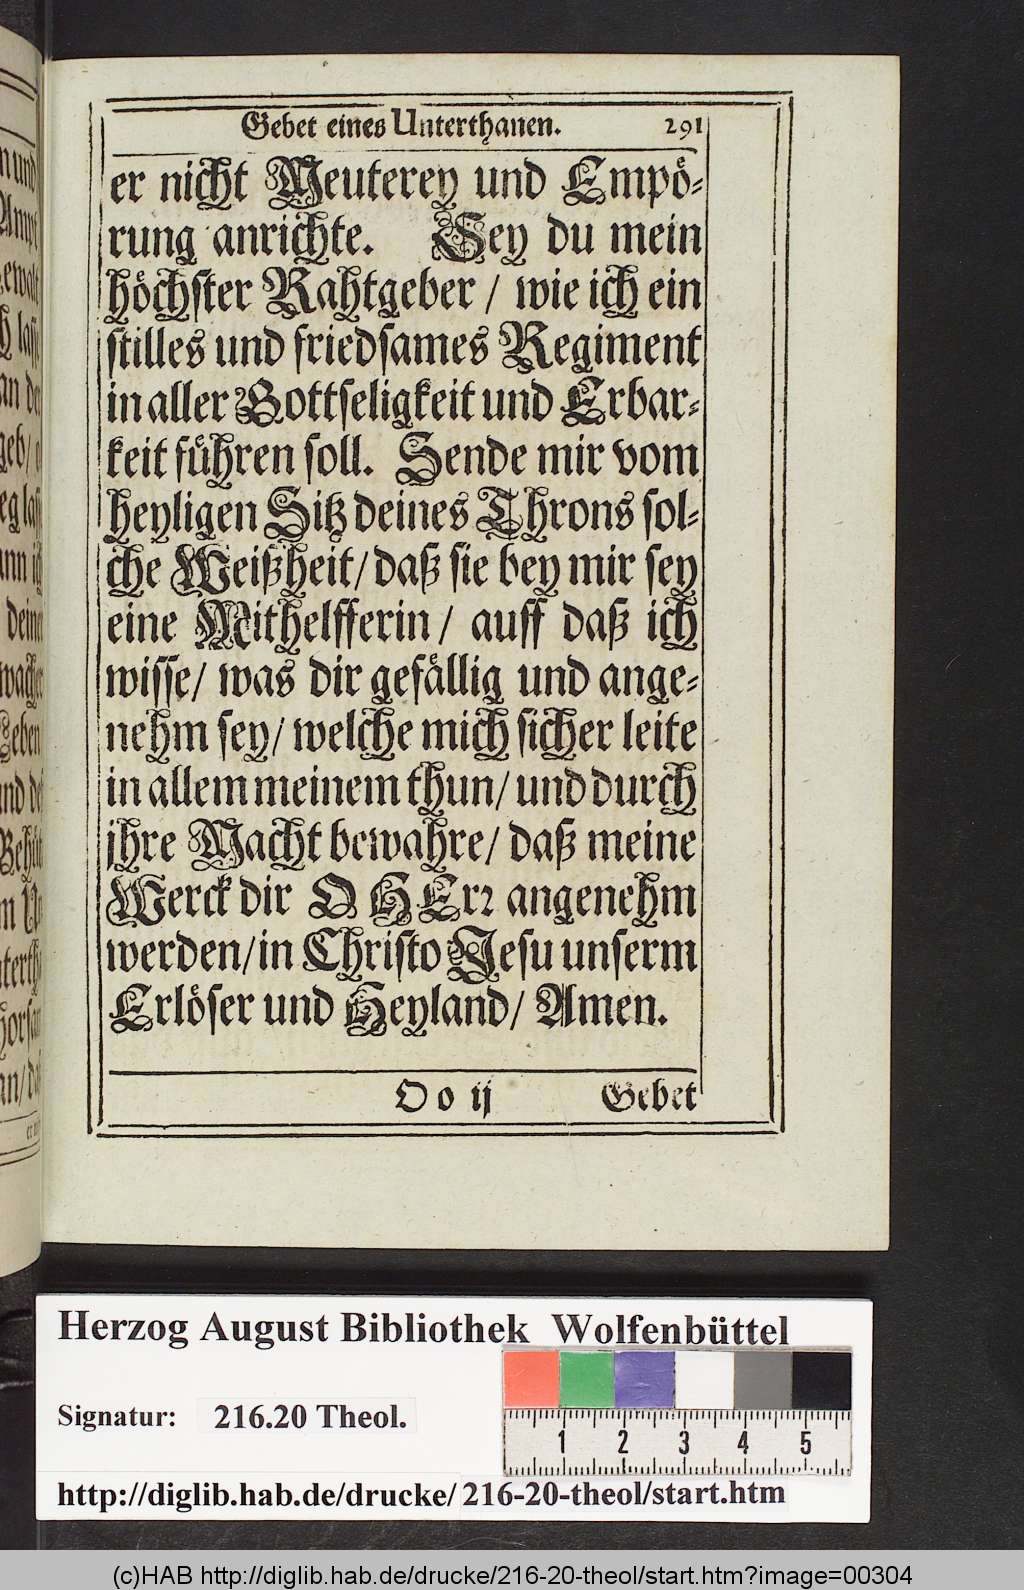 Gebet eines Unterthanen. 291
er nicht Meuterey und Empö-
rung anrichte. Sey du mein
höchster Rahtgeber / wie ich ein
stilles und friedsames Regiment
in aller Gottseligkeit und Erbar-
keit führen soll. Sende mir vom
heyligen Sitz deines Throns sol-
che Weißheit / daß sie bey mir sey
eine Mithelfferin / auff daß ich
wisse / was dir gefällig und ange-
nehm sey / welche mich sicher leite
in allem meinem thun / und durch
jhre Macht bewahre / daß meine
Werck dir O HErr angenehm
werden / in Christo Jesu unserm
Erlöser und Heyland / Amen.
O o ij Gebet
Herzog August Bibliothek Wolfenbüttel
Signatur: 216.20 Theol.
1 2 3 4 5
http://diglib.hab.de/drucke/216-20-theol/start.htm
(c)HAB http://diglib.hab.de/drucke/216-20-theol/start.htm?image=00304